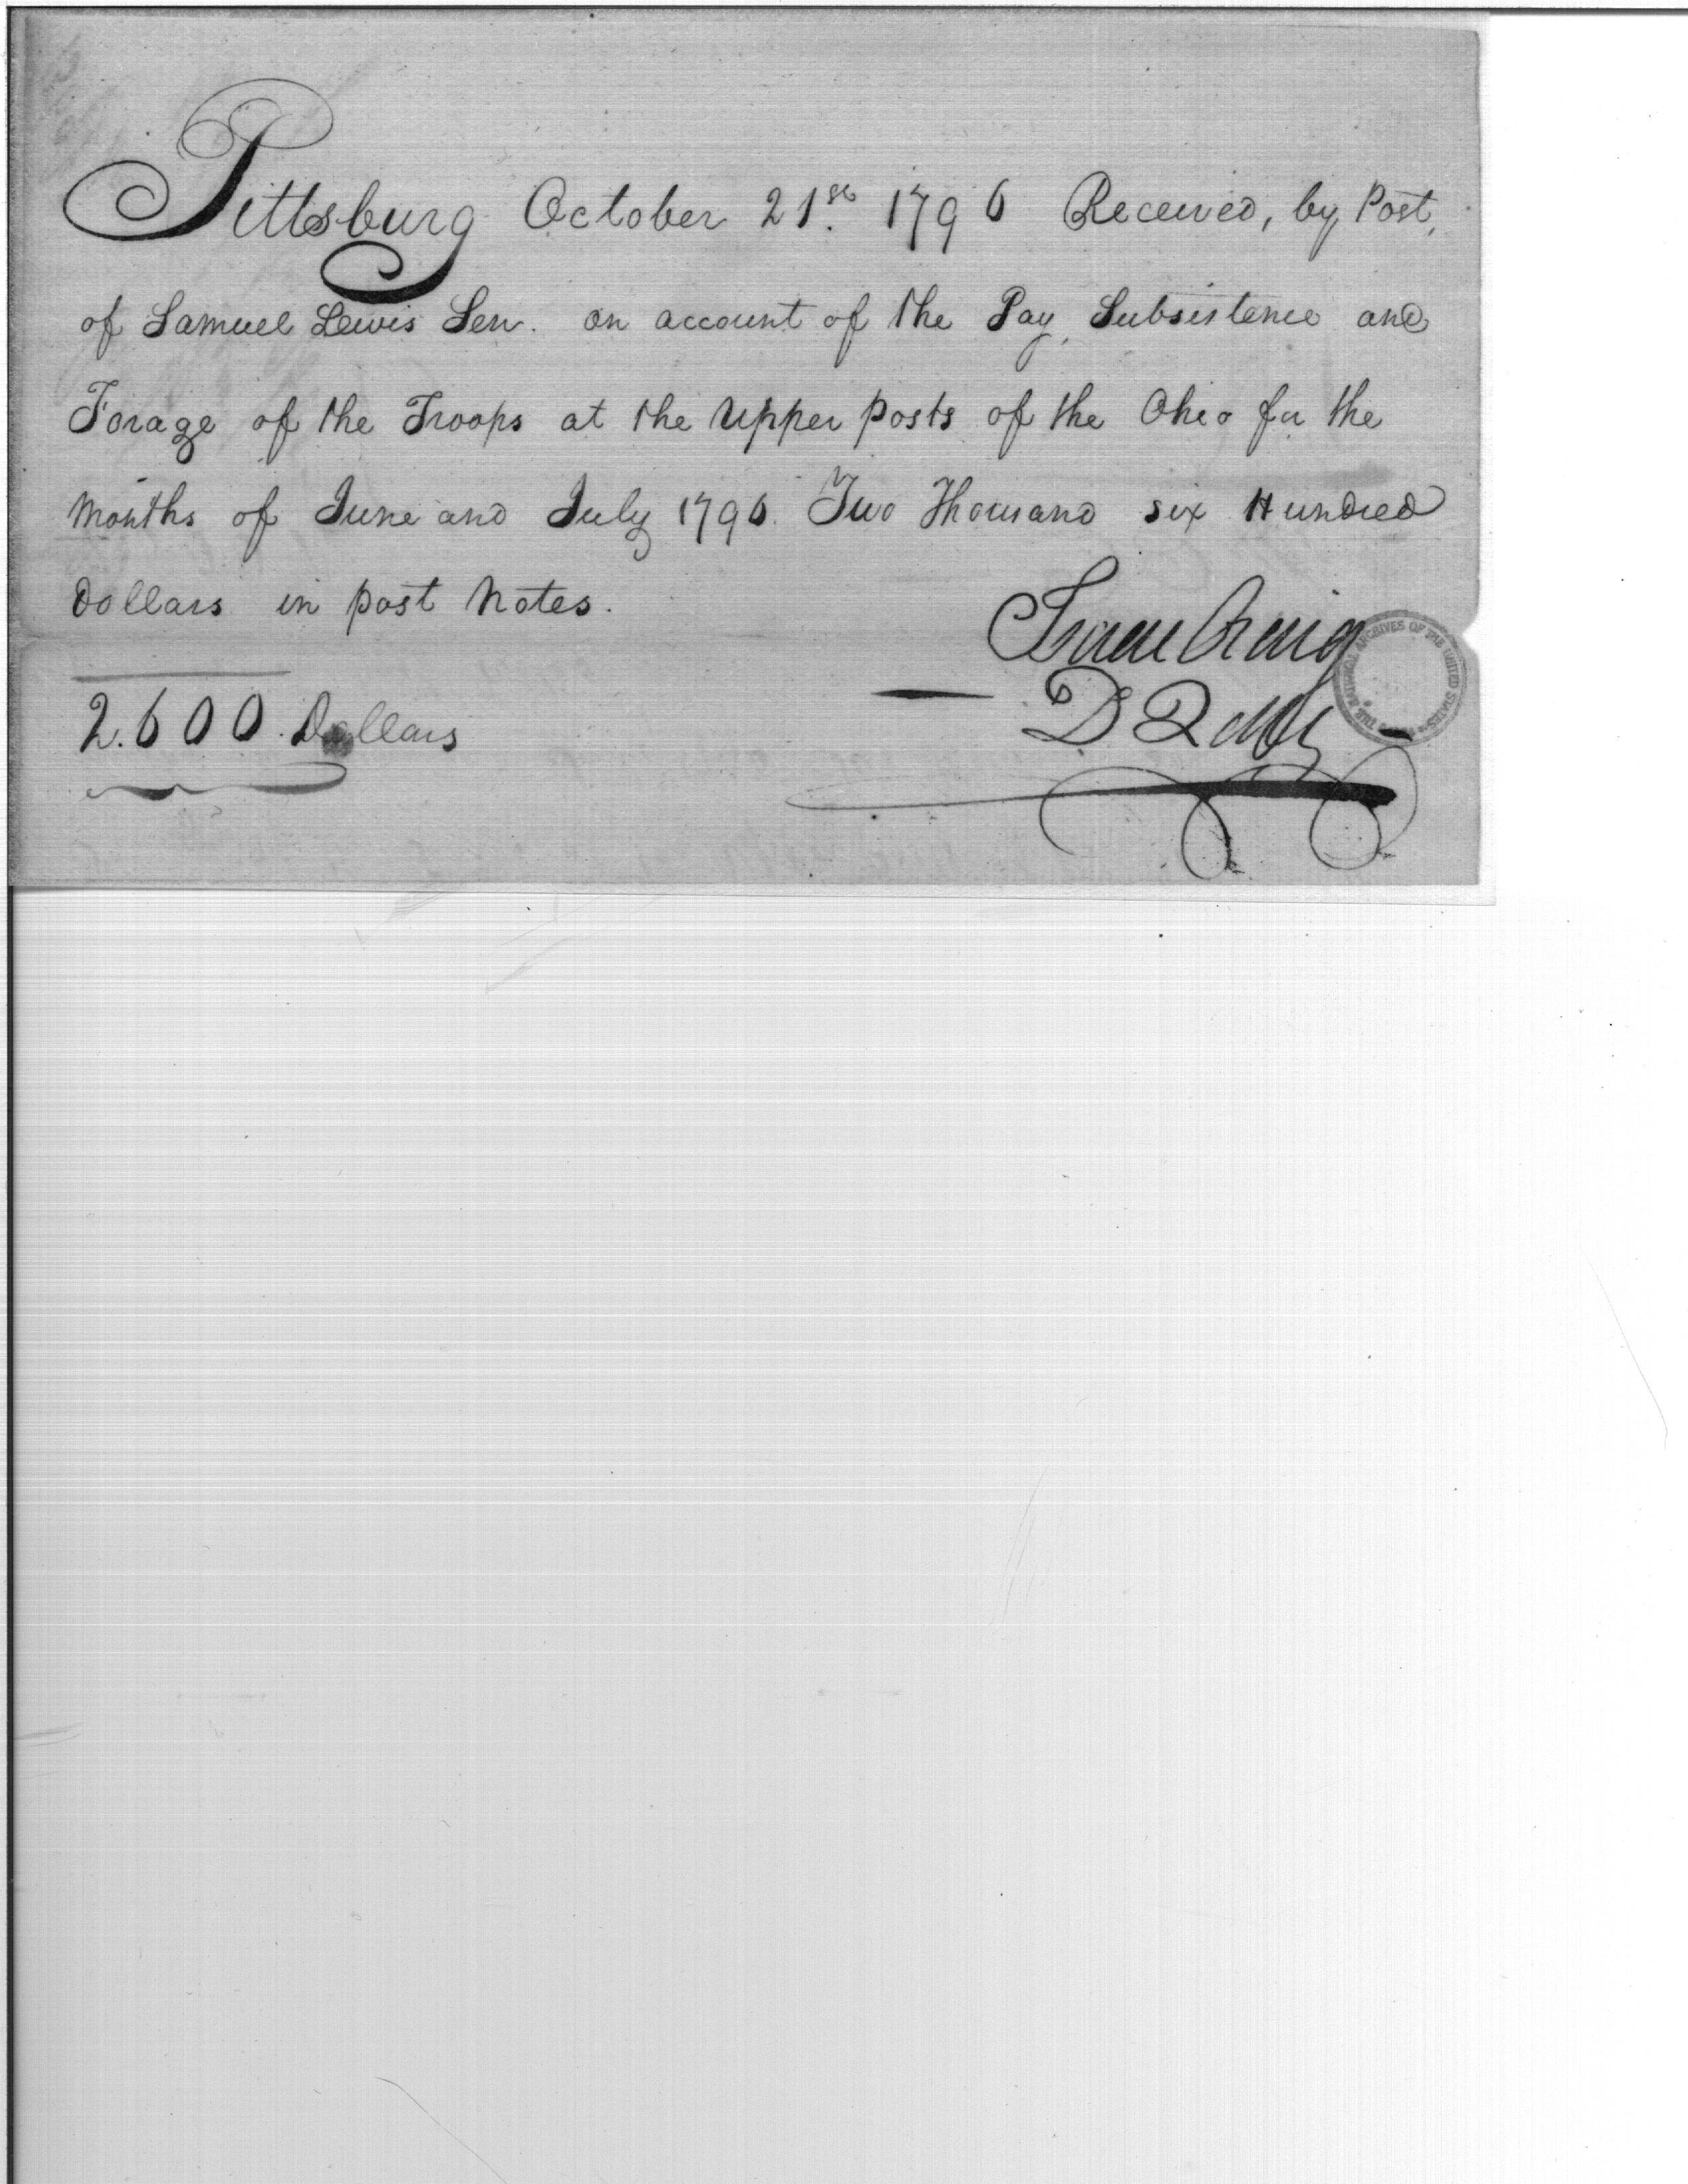 Pittsburg October 21st. 1796 Received, by Post,
of Samuel Lewis Sen. on account of the Pay, Subsistence and
Forage of the Troops at the Upper posts of the Ohio for the
Months of June and July 1796. Two Thousand six Hundred
Dollars in post Notes.
Isaac Craig
2.600 Dollars
D Q M G
THE NATIONAL ARCHIVES OF THE UNITED STATES